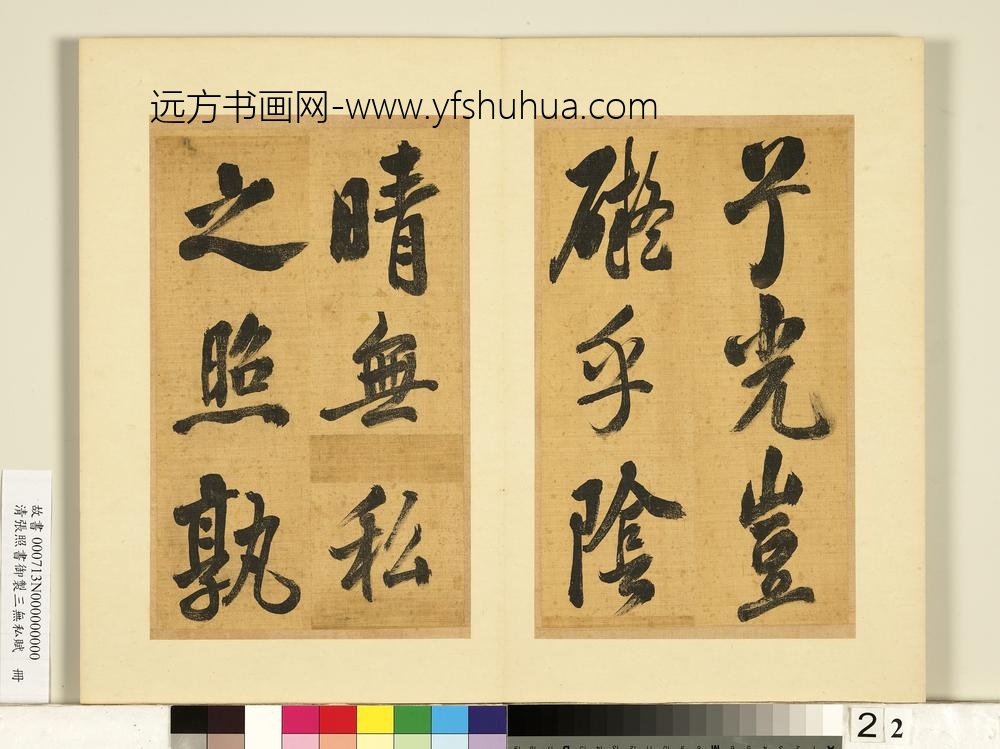 远方书画网-www.yfshuhua.com
兮光豈
礙乎陰
晴無私
之照孰
故書 000713N000000000
清張照書御製三無私賦 冊
2 2